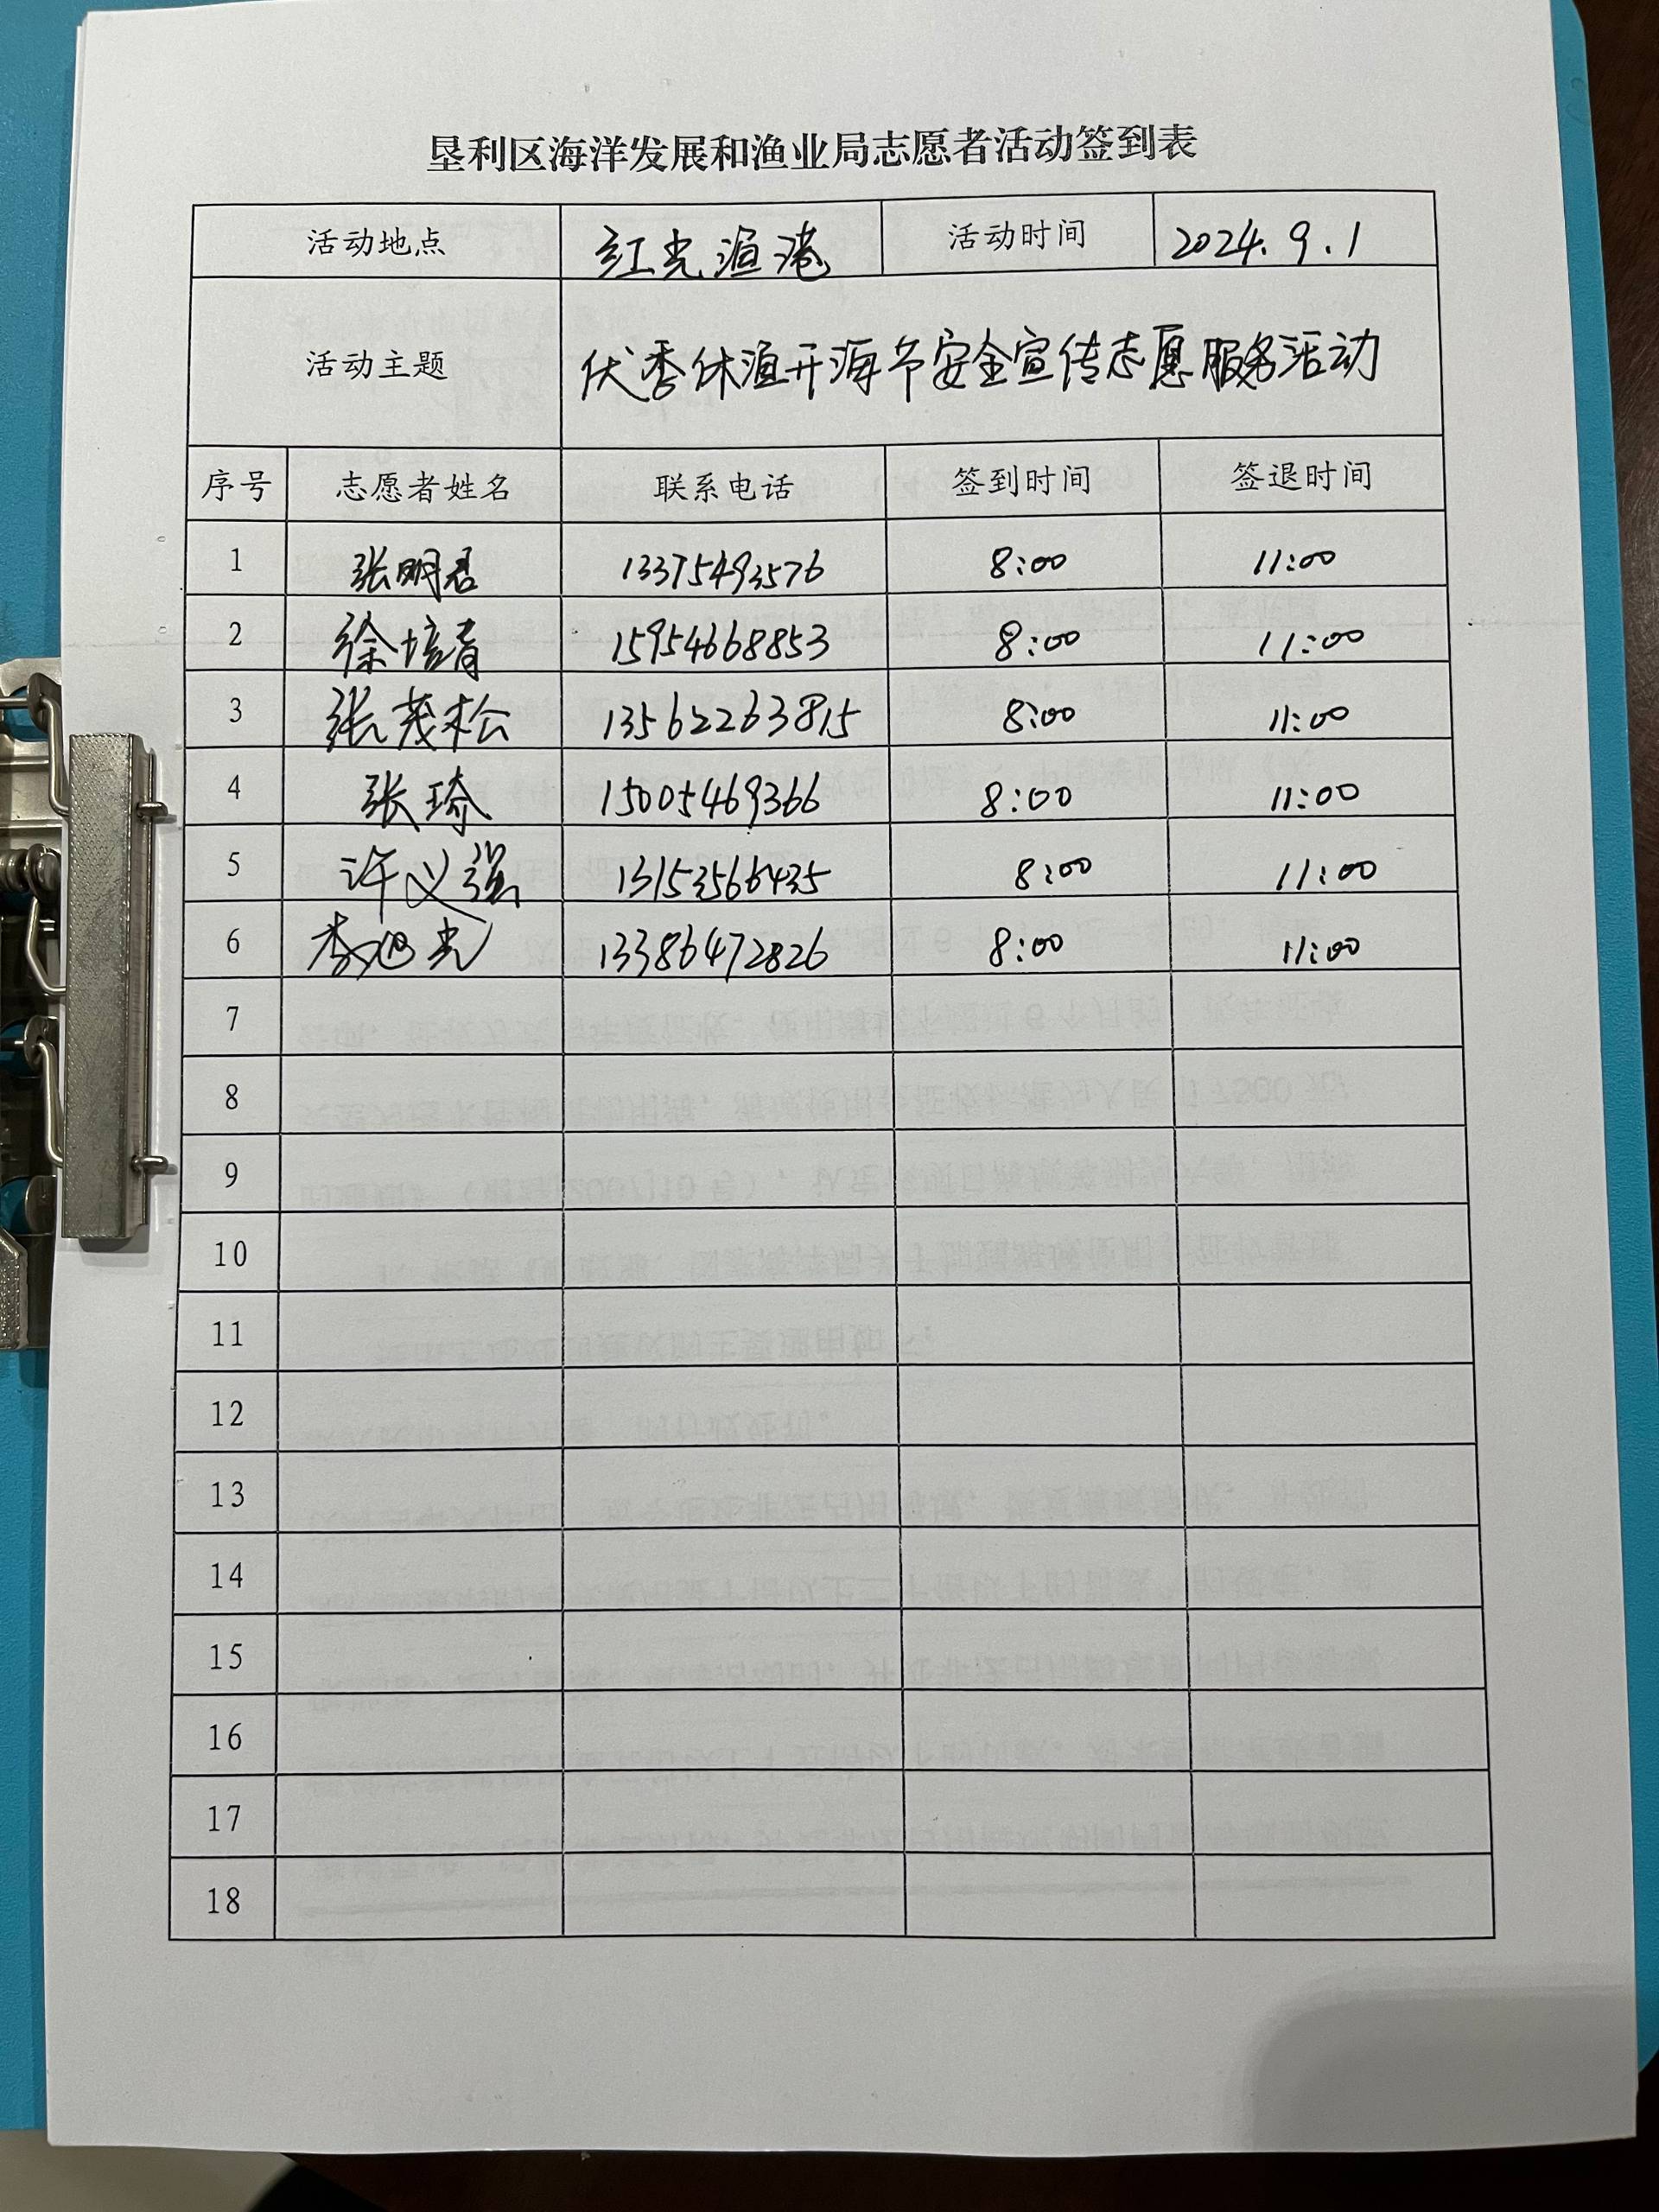 垦利区海洋发展和渔业局志愿者活动签到表
活动地点 红光渔港 活动时间 2024.9.1
活动主题 伏季休渔开海节安全宣传志愿服务活动
序号 志愿者姓名 联系电话 签到时间 签退时间
1 张明君 13375493576 8:00 11:00
2 徐培育 15954668853 8:00 11:00
3 张茂松 13562263815 8:00 11:00
4 张琦 15005469366 8:00 11:00
5 许义强 13153566435 8:00 11:00
6 李旭光 13386472826 8:00 11:00
7
8
9
10
11
12
13
14
15
16
17
18